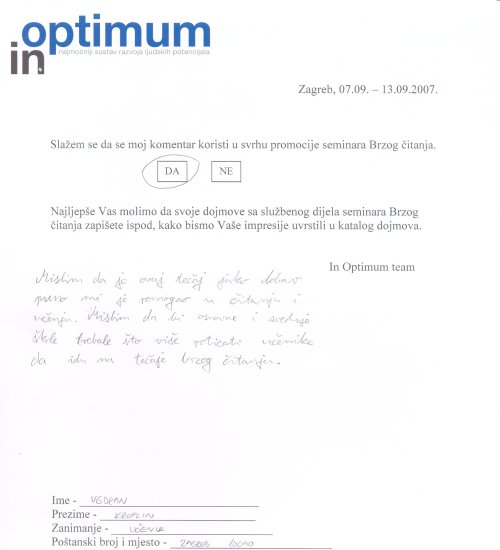 in optimum
najmoćniji sustav razvoja ljudskih potencijala
Zagreb, 07.09. – 13.09.2007.
Slažem se da se moj komentar koristi u svrhu promocije seminara Brzog čitanja.
DA NE
Najljepše Vas molimo da svoje dojmove sa službenog dijela seminara Brzog
čitanja zapišete ispod, kako bismo Vaše impresije uvrstili u katalog dojmova.
In Optimum team
Mislim da je ovaj tečaj jako dobar
puno mi je pomogao u čitanju i
učenju. Mislim da bi osnovne i srednje
škole trebale što više poticati učenike
da idu na tečaje brzog čitanja.
Ime - VEDRAN
Prezime -
Zanimanje - UČENIK
Poštanski broj i mjesto - ZAGREB